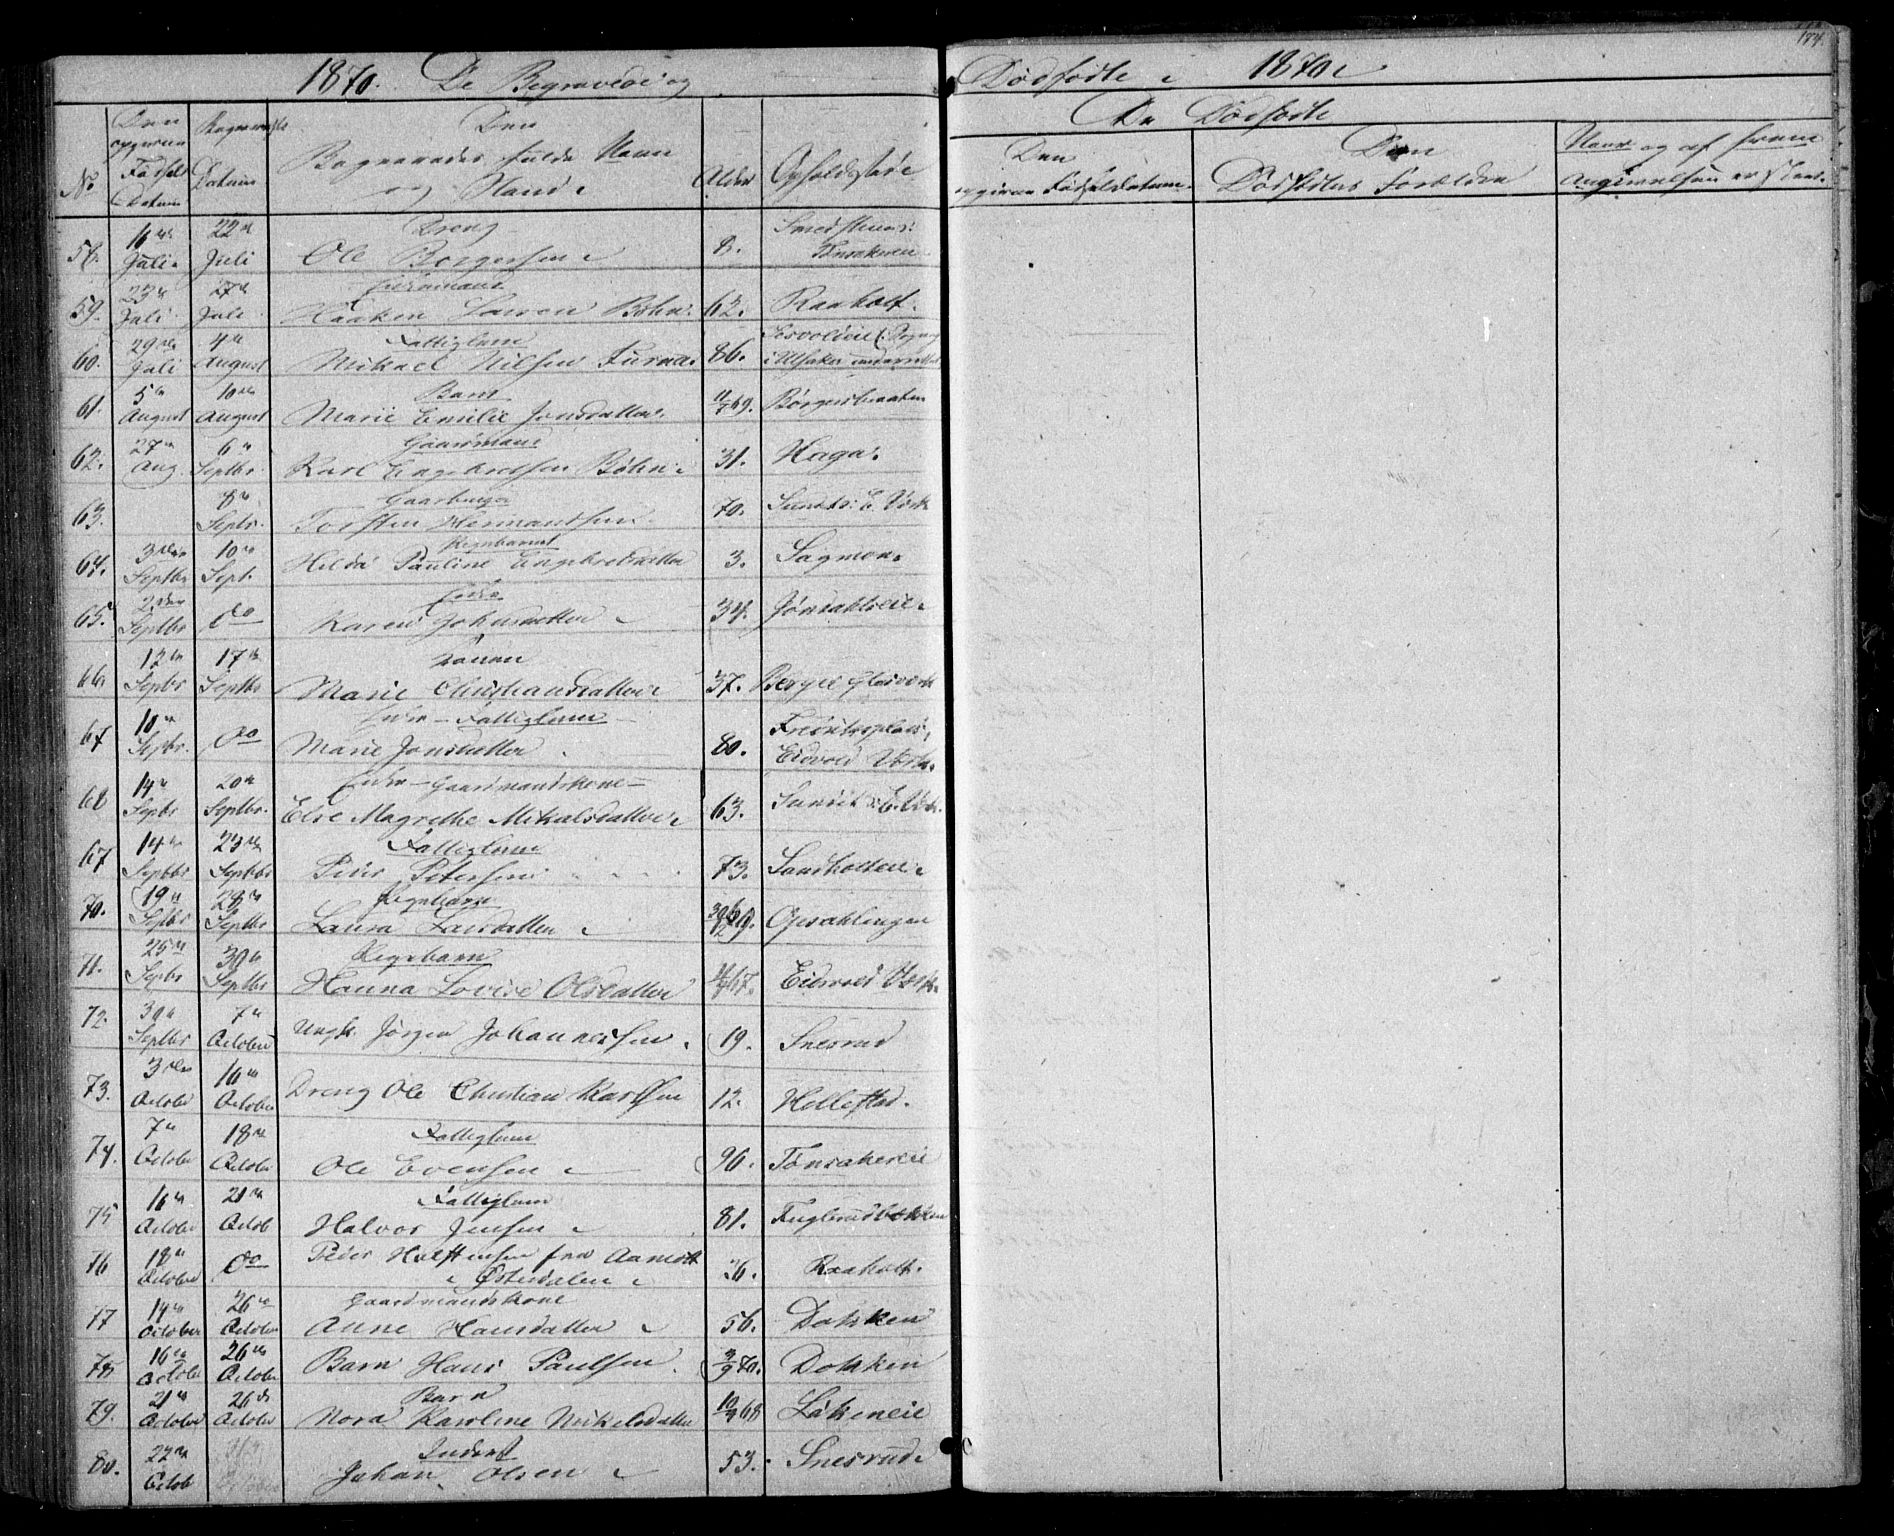 1870. De Begravede og
Dødfødte i 1870
174.
De Dødfødte
No
Den opgivne Fødsels Datum
Begravelse Datum
Den Begravedes fulde Navn og Stand
Alder
Opholdssted
Den opgivne Fødsels Datum.
Den Dødfødtes Forældre
Naar og af hvem Angivelsen er skeet.
16de Juli 22de Juli Dreng Ole Borgersen 8.
59. 23de Juli 27de Juli Haaken Larsen Bøhn. 62. Raaholt.
60. 29de Juli 4de August Fattiglem Mikael Nilsen Furua. 86.
61. 5te August 10de August Barn Marie Emilie Jonsdatter. 11/7 69. Børgerbraaten
62. 27de Aug. 6te Septbr. Gaardmand Karl Engebretsen Bøhn 31. Haga.
63. 8de Septbr. Torsten Hermandsen 70. E. Værk
64. 3die Septbr 10de Sept. Pigebarnet Hilda Pauline Engebretsdatter 3. Sagmoen.
65. 2den Septbr do Enke Karen Johnsdatter 34.
66. 12te Septbr 17de Septbr Konen Marie Christiansdatter 37. Berger Glasværk
67 10de Septbr. do Enke – Fattiglem – Marie Jonsdatter 80. Eidsvold Værk.
68 14de Septbr 20de Septbr. Enke – Gaardmandskone – Else Magrethe Mikalsdatter 63. E. Værk.
67 14de Septbr 23de Septbr Fattiglem Peder Petersen 73. Sandholteie
70. 19de Septbr 28de Septbr Pigebarn Laura Larsdatter Opsahlengen
71. 25de Septbr 30de Septbr Pigebarn Hanna Lovise Olsdatter 67. Eidsvold Værk.
72. 30de Septbr 7de October Ungk. Jørgen Johannessen 19. Snesrud
73. 3die October 16de October Dreng Ole Christian Karlsen 12. Hellestad.
74. 7de October 18de October Fattiglem Ole Evensen 90. Tønsakereie
75 16de October 21de Octob Fattiglem Halvor Jensen 81. Fuglerudbakken
76 18de October do Peder Halfstensen fra Aamodt i Østerdalen 36. Raaholt.
77 14de October 26de October Gaardmandskone Anne Hansdatter 56. Dokken
78 16de October 26de October Barn Hans Paulsen. 3/9 70. Dokken
79. 21de October 26de October Barn Nora Karoline Mikelsdatter 10/4 68 Låkeneie
80. 22de Octob October Inderst Johan Olsen 53. Snesrud